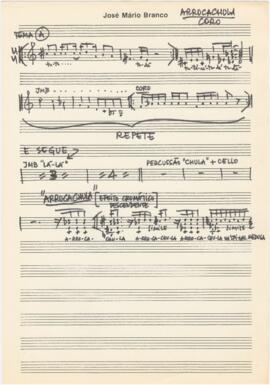 José Mário Branco
ARROCACHULA
CORO
TEMA A
JMB
CORO
REPETE
E SEGUE
JMB "LÁ-LÁ"
PERCUSSÃO "CHULA" + CELLO
3
4
"ARROCACHULA" [EFEITO CROMÁTICO DESCENDENTE
SIMILE
SIMILE
A-RRO-CA-CHU-LA A-RRO-CA-CHU-LA A-RRO-CA-CHU-LA